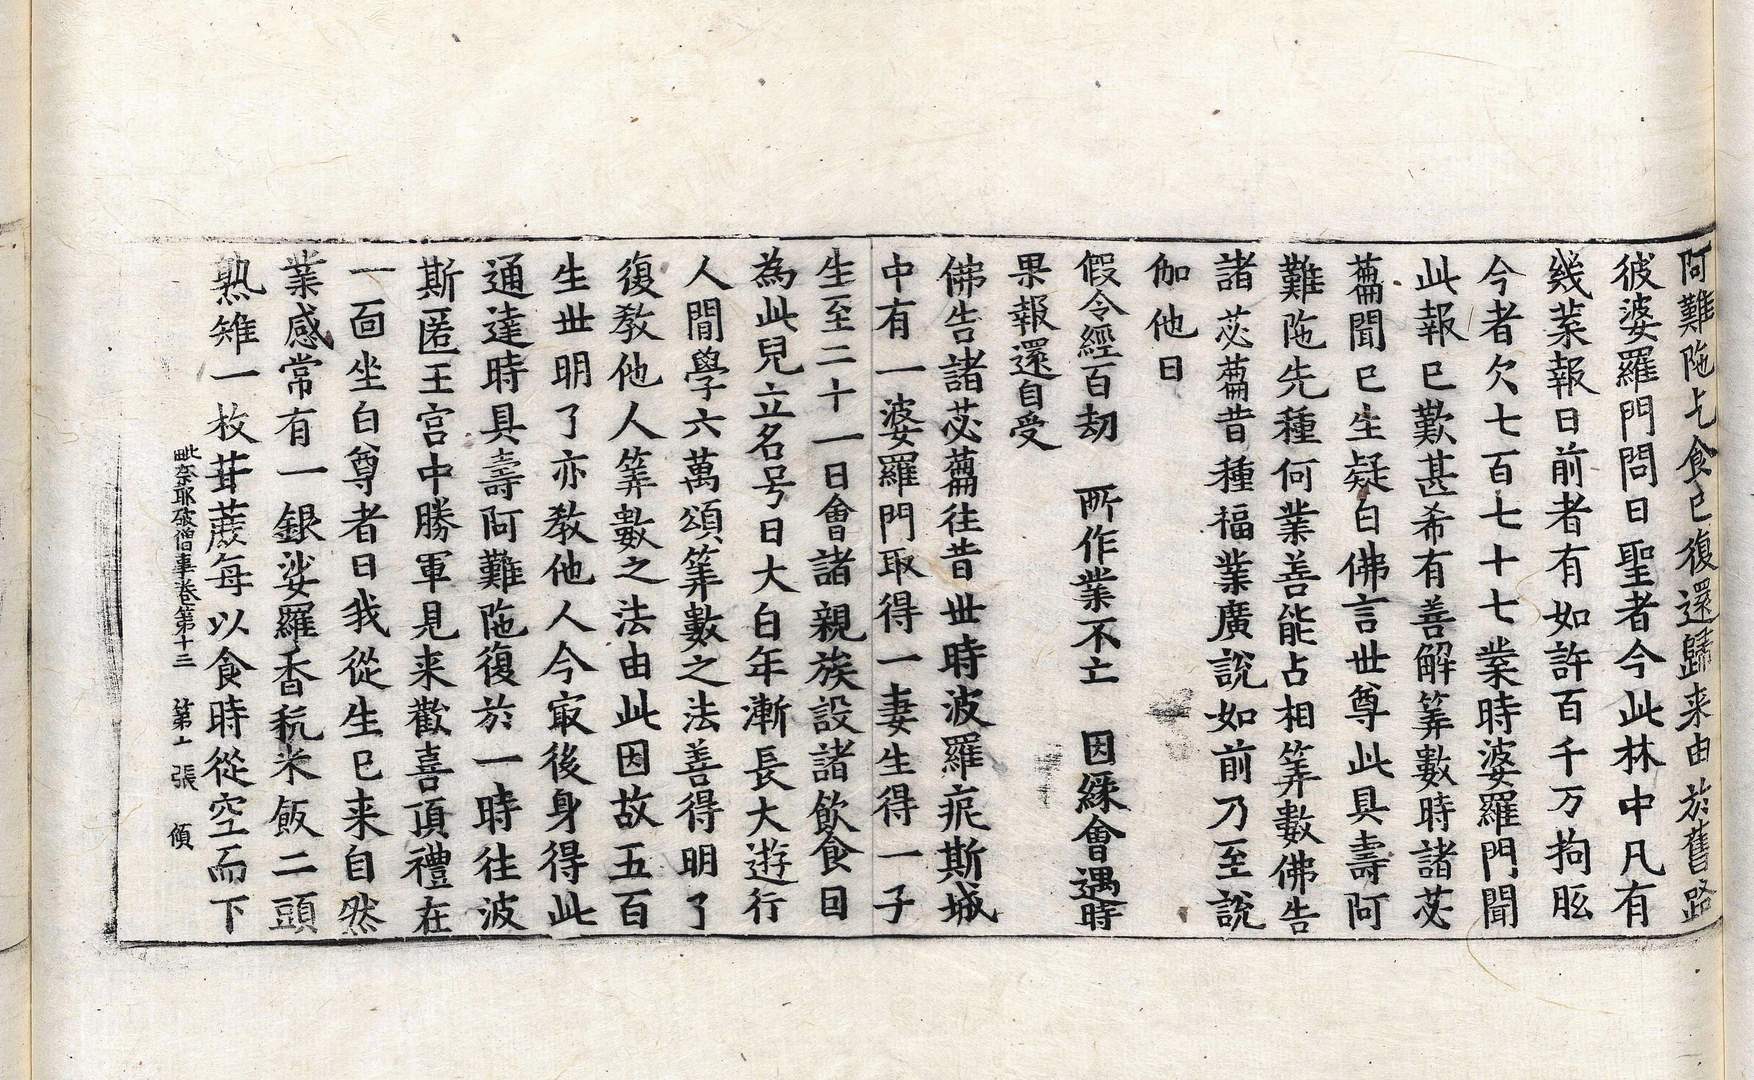 阿難陁乞食已復還歸来由於舊路
彼婆羅門問曰聖者今此林中凡有
幾葉報曰前者有如許百千万拘胝
今者欠七百七十七葉時婆羅門聞
此報已歎甚希有善解筭數時諸苾
蒭聞已生疑白佛言世尊此具壽阿
難陁先種何業善能占相筭數佛告
諸苾蒭昔種福業廣說如前乃至說
伽他曰
假令經百劫 所作業不亡 因緣會遇時
果報還自受
佛告諸苾蒭往昔世時波羅痆斯城
中有一婆羅門取得一妻生得一子
生至二十一日會諸親族設諸飲食曰
為此兒立名号曰大白年漸長大遊行
人間學六萬頌筭數之法善得明了
復教他人筭數之法由此因故五百
生世明了亦教他人今㝡後身得此
通達時具壽阿難陁復於一時往波
斯匿王宮中勝軍見来歡喜頂禮在
一面坐白尊者曰我從生已来自然
業感常有一銀娑羅香秔米飯二頭
熟雉一枚苷蔗每以食時從空而下
毗奈耶破僧事卷第十三 第 張 傾